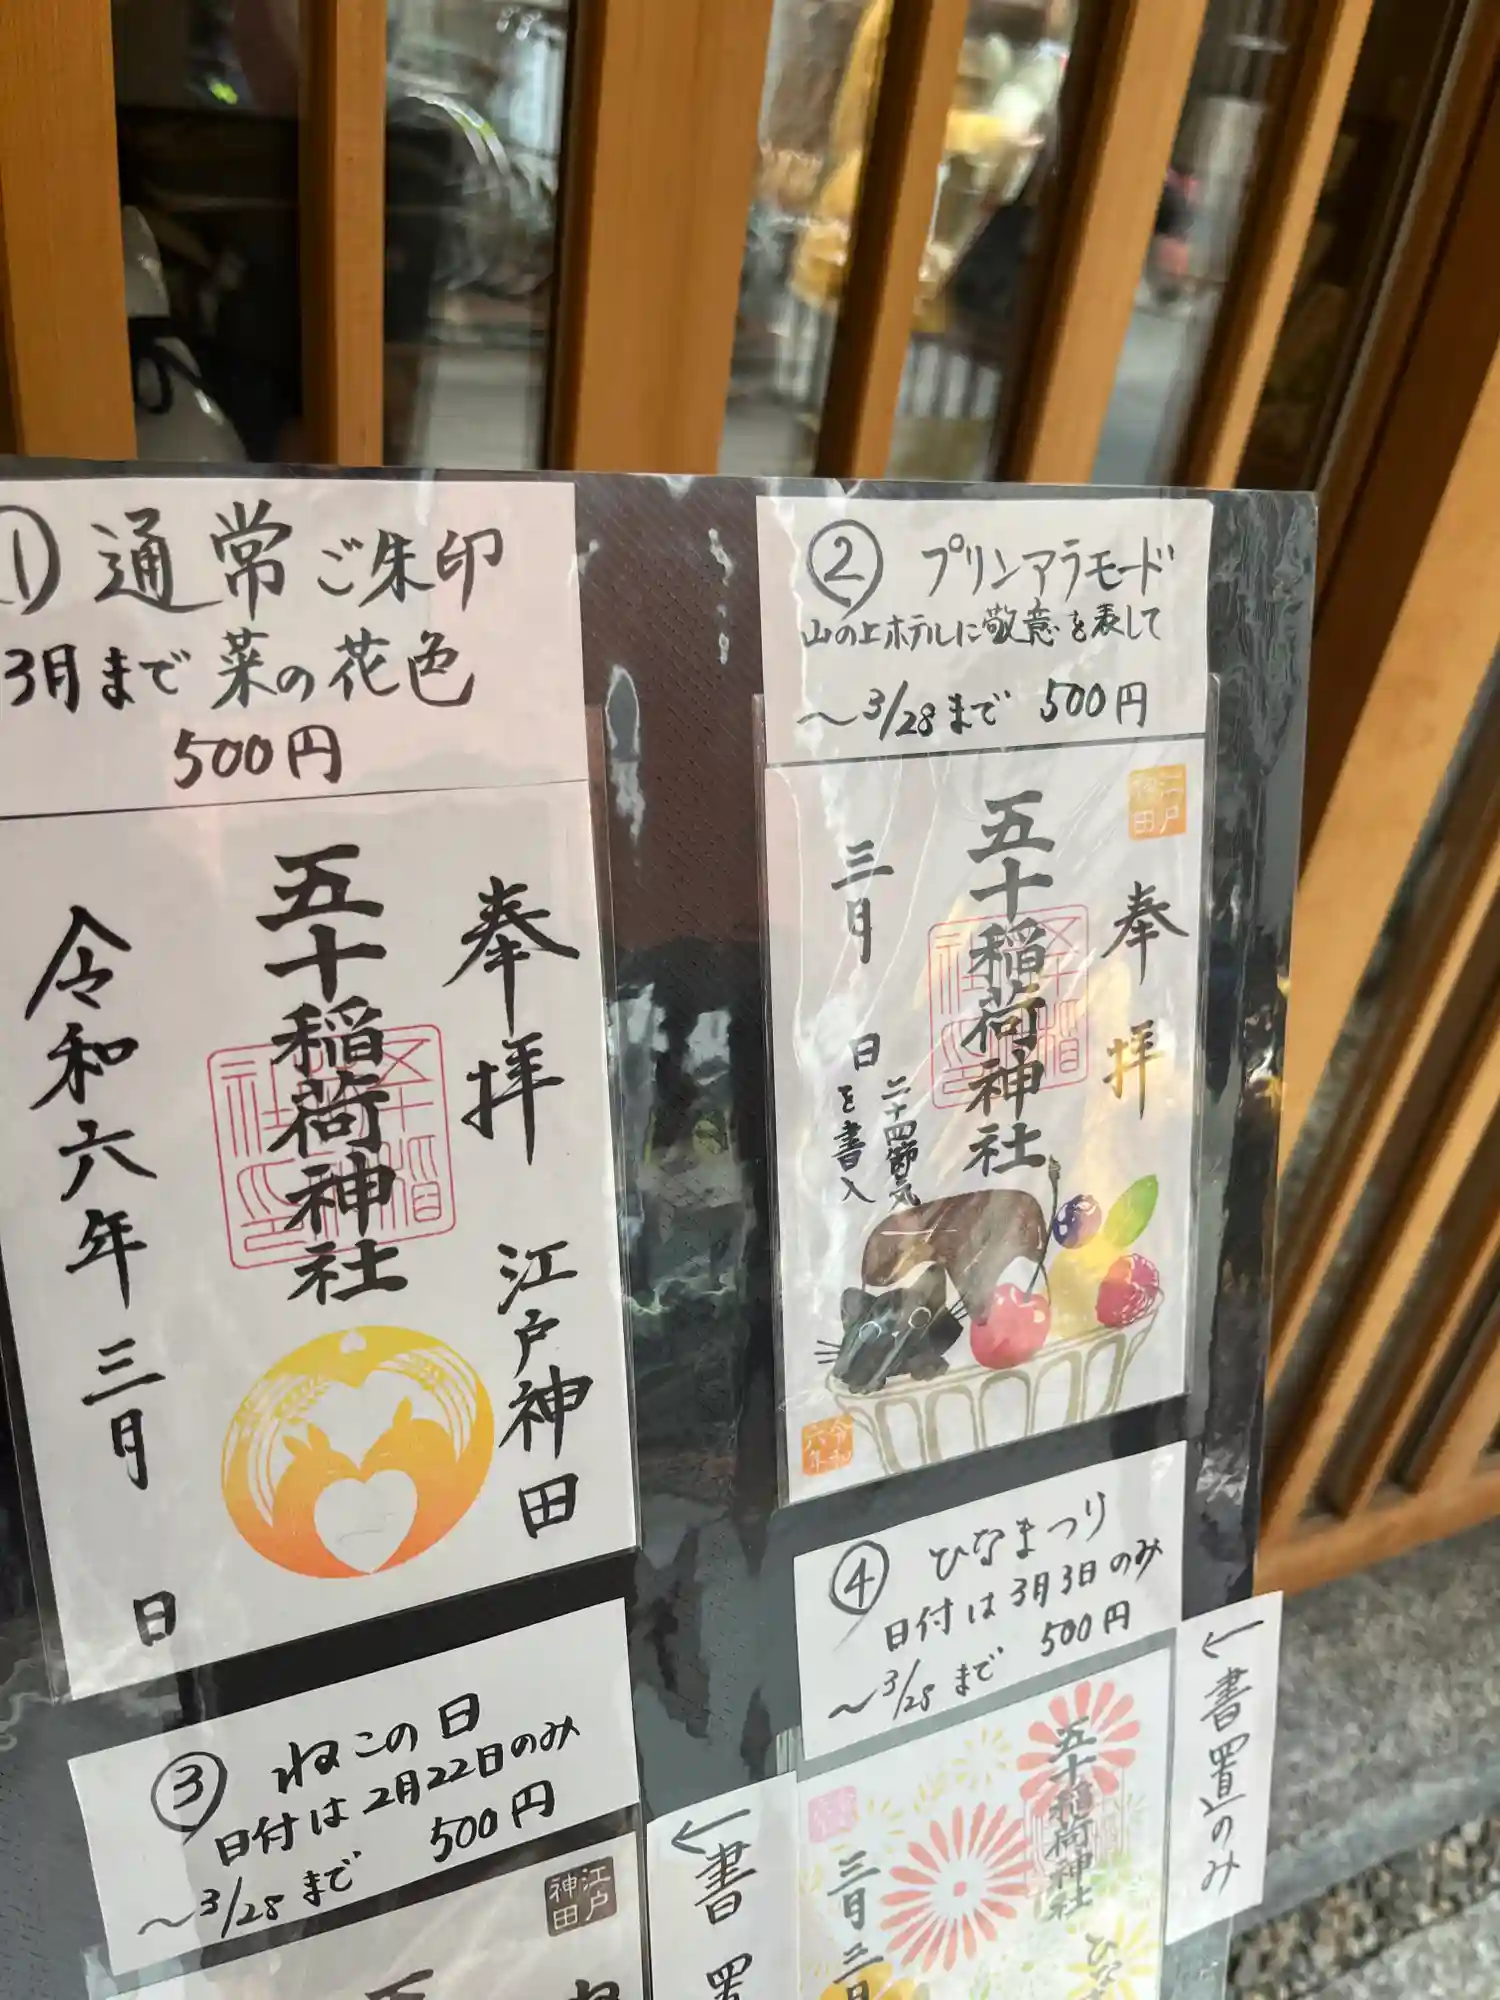 ① 通常ご朱印
3月まで菜の花色
500円
奉拝 江戸神田
五十稲荷神社
令和六年 三月 日
② プリンアラモード
山の上ホテルに敬意を表して
〜3/28まで 500円
江戸神田
奉拝
五十稲荷神社
三月 日
二十四節気
を書入
令和六年
③ ねこの日
日付は2月22日のみ
500円
〜3/28まで
江戸神田
←書置
④ ひなまつり
日付は3月3日のみ
500円
〜3/28まで
←書置のみ
五十稲荷神社
三月三日
ひな